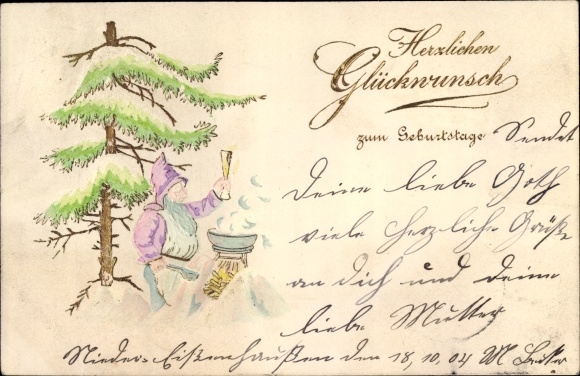 Herzlichen
Glückwunsch
zum Geburtstage Sendet
Deine liebe Goth
viele herzliche Grüße
an dich und deine
liebe Mutter
Nieder-Eißenhaußen den 18, 10, 04 M